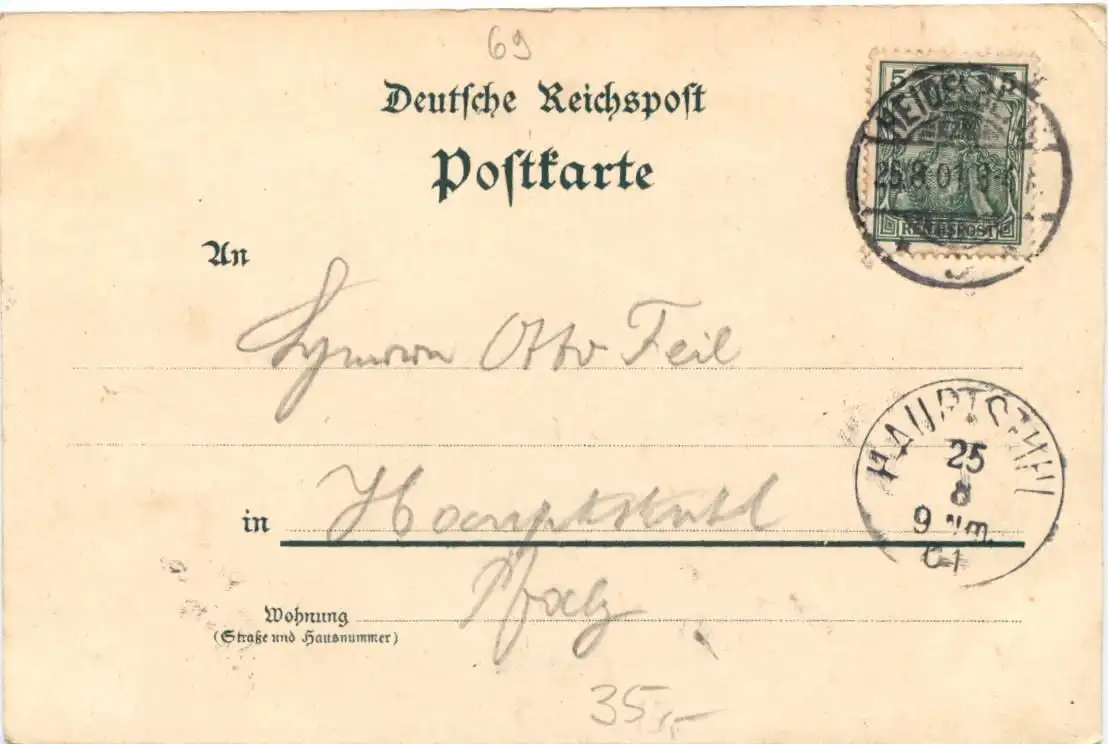 69
Deutsche Reichspost
Postkarte
5 5
REICHSPOST
25.8.01
An
Herrn Otto Feil
HAUPTSTUHL
25
8
9 Nm.
01
in Hauptstuhl
Pfalz
Wohnung
(Straße und Hausnummer)
35,-